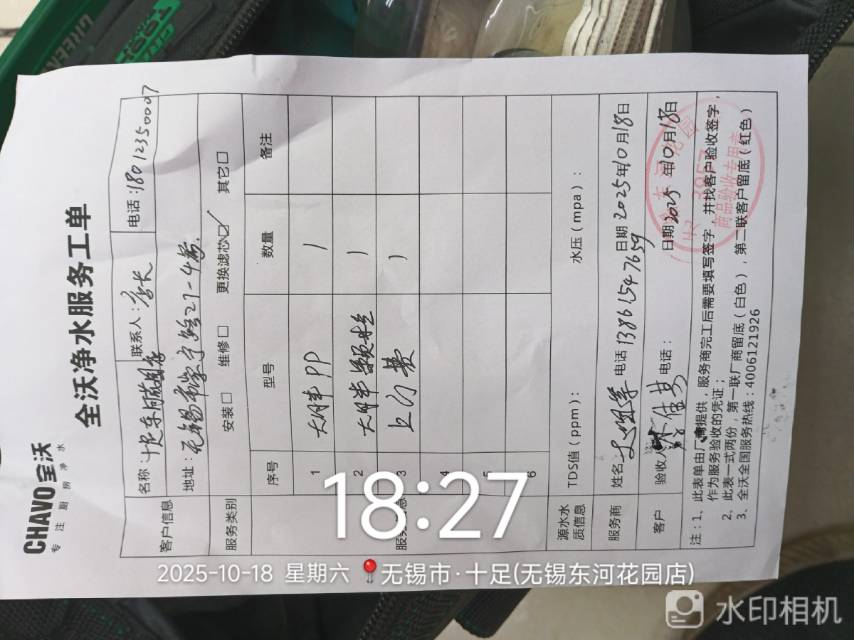 CHAVO 全沃
专注厨房净水
全沃净水服务工单
客户信息 名称： 联系人： 电话：18012350007
地址：无锡市 21-4号
服务类别 安装□ 维修□ 更换滤芯☑ 其它□
序号 型号 数量 备注
1 大胖 PP 1
2 大胖 1
3 上门费 1
4
5
6
源水水质信息 TDS值（ppm）： 水压（mpa）：
服务商 姓名： 电话13861547659 日期2025年10月18日
客户 验收人 电话： 日期2025年10月18日
注：1、此表单由厂商提供，服务商完工后需要填写签字，并找客户验收签字，
作为服务验收的凭证；
2、此表一式两份，第一联厂商留底（白色），第二联客户留底（红色）
3、全沃全国服务热线：4006121926
商品验收专用章
18:27
2025-10-18 星期六 无锡市·十足(无锡东河花园店)
水印相机
GREEN